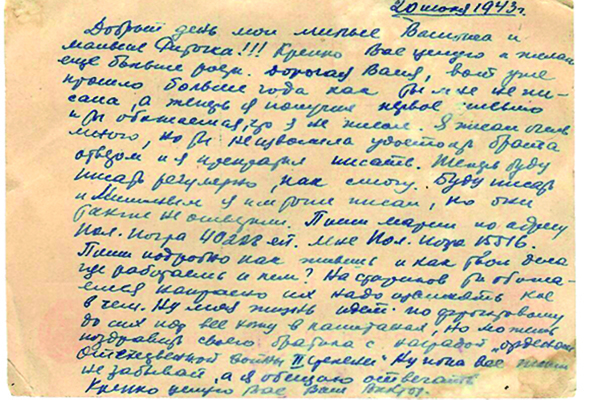 20 июня 1943 г.
Добрый день мои милые Васенька и
Крепко Вас целую и желаю
еще больше роди. Дорогая Вася, вот уже
прошло больше года как ты мне не пи-
сала, а теперь я получил первое письмо
и ты обижаешся, что я не писал. Я писал очень
много, но ты не изволила удостоить брата
ответом и я прекратил писать. Теперь буду
писать регулярно, как смогу. Буду писать
и я им тоже писал, но они
также не ответили. Пиши Марии по адресу
Пол. почта 40228 ей. мне Пол. почта 15516.
Пиши подробно как живешь и как твои дела
где работаешь и кем? На стариков ты обижа-
ешся напрасно их надо уважать кое
в чем. Ну моя жизнь идет по фронтовому
до сих пор все хожу в капитанах. Но можешь
поздравить своего братика с наградой "орденом
Отечественной войны II степени" Ну пока все пиши
не забывай, а я обещаю отвечать
Крепко целую Вас Ваш Виктор.